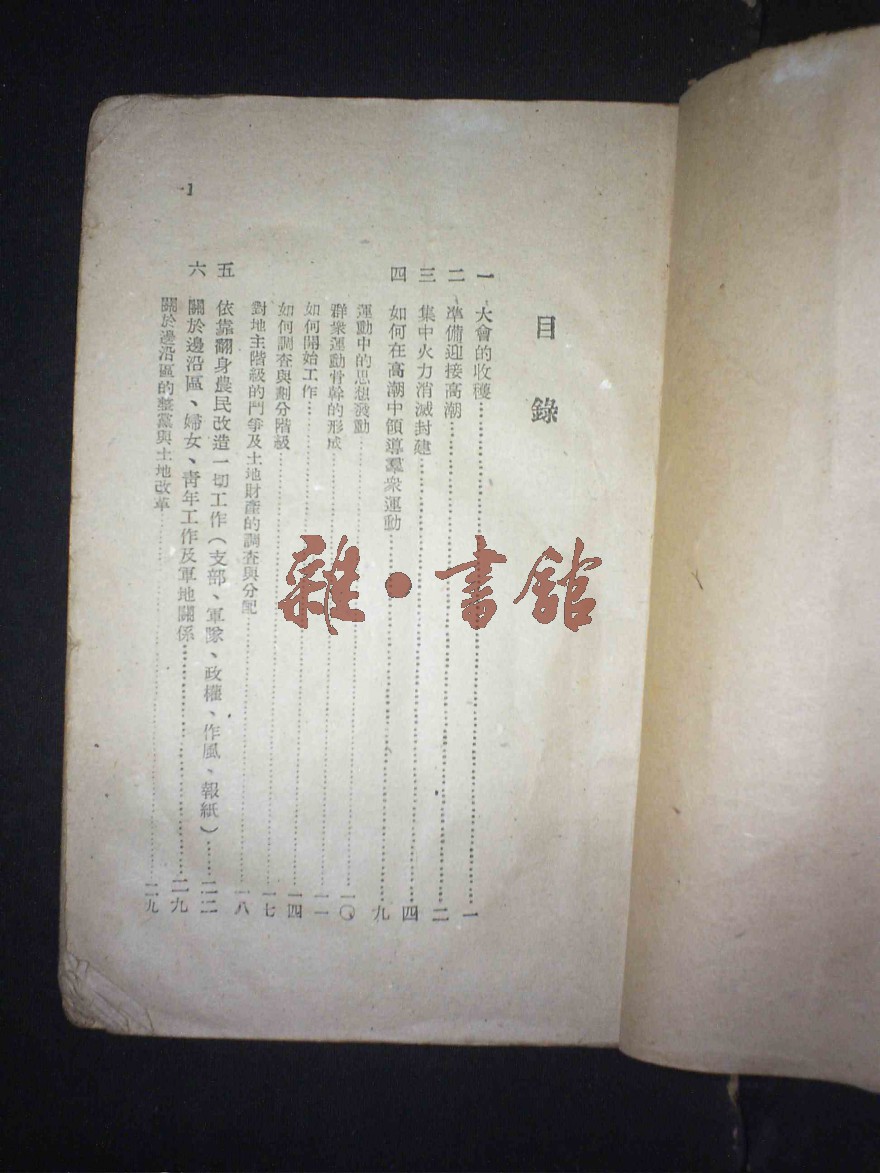 目錄
一 大會的收穫……一
二 準備迎接高潮……二
三 集中火力消滅封建……四
四 如何在高潮中領導羣衆運動……九
運動中的思想發動……一〇
群衆運動骨幹的形成……一一
如何開始工作……一四
如何調查與劃分階級……一七
對地主階級的鬥爭及土地財產的調查與分配……一八
五 依靠翻身農民改造一切工作(支部、軍隊、政權、作風、報紙)……二二
六 關於邊沿區、婦女、靑年工作及軍地關係……二九
關於邊沿區的整黨與土地改革……二九
1
雜·書館